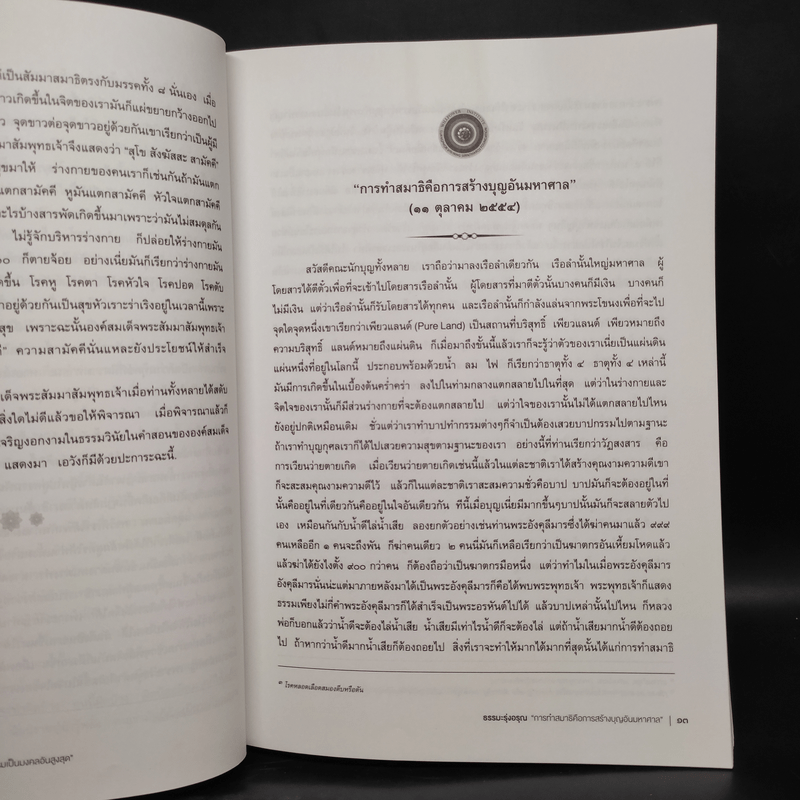 เป็นสัมมาสมาธิตรงกับมรรคทั้ง ๘ นั่นเอง เมื่อ
าวเกิดขึ้นในจิตของเรามันก็แผ่ขยายกว้างออกไป
ว จุดขาวต่อจุดขาวอยู่ด้วยกันเขาเรียกว่าเป็นผู้มี
มาสัมพุทธเจ้าจึงแสดงว่า "สุโข สังฆัสสะ สามัคคี"
ขมาให้ ร่างกายของคนเราก็เช่นกันถ้ามันแตก
แตกสามัคคี หูมันแตกสามัคคี หัวใจแตกสามัคคี
ะไรบ้างสารพัดเกิดขึ้นมาเพราะว่ามันไม่สมดุลกัน
ไม่รู้จักบริหารร่างกาย ก็ปล่อยให้ร่างกายมัน
๐๐ ก็ตายจ้อย อย่างเนี่ยมันก็เรียกว่าร่างกายมัน
ดขึ้น โรคหู โรคตา โรคหัวใจ โรคปอด โรคตับ
าอยู่ด้วยกันเป็นสุขหัวเราะร่าเริงอยู่ในเวลานี้เพราะ
สุข เพราะฉะนั้นองค์สมเด็จพระสัมมาสัมพุทธเจ้า
คี" ความสามัคคีนั่นแหละยังประโยชน์ให้สำเร็จ
ด็จพระสัมมาสัมพุทธเจ้าเมื่อท่านทั้งหลายได้สดับ
สิ่งใดไม่ดีแล้วขอให้พิจารณา เมื่อพิจารณาแล้วก็
จริญงอกงามในธรรมวินัยในคำสอนขององค์สมเด็จ
แสดงมา เอวังก็มีด้วยประการะฉะนี้.
มเป็นมงคลอันสูงสุด"
"การทำสมาธิคือการสร้างบุญอันมหาศาล"
(๑๑ ตุลาคม ๒๕๕๔)
สวัสดีคณะนักบุญทั้งหลาย เราถือว่ามาลงเรือลำเดียวกัน เรือลำนั้นใหญ่มหาศาล ผู้
โดยสารได้ตีตั๋วเพื่อที่จะเข้าไปโดยสารเรือลำนั้น ผู้โดยสารที่มาตีตั๋วนั้นบางคนก็มีเงิน บางคนก็
ไม่มีเงิน แต่ว่าเรือลำนั้นก็รับโดยสารได้ทุกคน และเรือลำนั้นก็กำลังแล่นจากพระโขนงเพื่อที่จะไป
จุดใดจุดหนึ่งเขาเรียกว่าเพียวแลนด์ (Pure Land) เป็นสถานที่บริสุทธิ์ เพียวแลนด์ เพียวหมายถึง
ความบริสุทธิ์ แลนด์หมายถึงแผ่นดิน ก็เมื่อมาถึงชั้นนี้แล้วเราก็จะรู้ว่าตัวของเราเนี่ยเป็นแผ่นดิน
แผ่นหนึ่งที่อยู่ในโลกนี้ ประกอบพร้อมด้วยน้ำ ลม ไฟ ก็เรียกว่าธาตุทั้ง ๔ ธาตุทั้ง ๔ เหล่านี้
มันมีการเกิดขึ้นในเบื้องต้นคร่ำคร่า ลงไปในท่ามกลางแตกสลายไปในที่สุด แต่ว่าในร่างกายและ
จิตใจของเรานั้นก็มีส่วนร่างกายที่จะต้องแตกสลายไป แต่ว่าใจของเรานั้นไม่ได้แตกสลายไปไหน
ยังอยู่ปกติเหมือนเดิม ชั่วแต่ว่าเราทำบาปทำกรรมต่างๆก็จำเป็นต้องเสวยบาปกรรมไปตามฐานะ
ถ้าเราทำบุญกุศลเราก็ได้ไปเสวยความสุขตามฐานะของเรา อย่างนี้ที่ท่านเรียกว่าวัฏสงสาร คือ
การเวียนว่ายตายเกิด เมื่อเวียนว่ายตายเกิดเช่นนี้แล้วในแต่ละชาติเราได้สร้างคุณงามความดีเขา
ก็จะสะสมคุณงามความดีไว้ แล้วก็ในแต่ละชาติเราสะสมความชั่วคือบาป บาปมันก็จะต้องอยู่ในที่
นั้นคืออยู่ในที่เดียวกันคืออยู่ในใจอันเดียวกัน ทีนี้เมื่อบุญเนี่ยมีมากขึ้นๆบาปนั้นมันก็จะสลายตัวไป
เอง เหมือนกันกับน้ำดีไล่น้ำเสีย ลองยกตัวอย่างเช่นท่านพระอังคุลีมารซึ่งได้ฆ่าคนมาแล้ว ๙๙๙
คนเหลืออีก ๑ คนจะถึงพัน ก็ฆ่าคนเดียว ๒ คนนี่มันก็เหลือเรียกว่าเป็นฆาตกรอันเหี้ยมโหดแล้ว
แล้วฆ่าได้ยังไงตั้ง ๙๐๐ กว่าคน ก็ต้องถือว่าเป็นฆาตกรมือหนึ่ง แต่ว่าทำไมในเมื่อพระอังคุลีมาร
อังคุลีมารนั่นน่ะแต่มาภายหลังมาได้เป็นพระอังคุลีมารก็คือได้พบพระพุทธเจ้า พระพุทธเจ้าก็แสดง
ธรรมเพียงไม่กี่คำพระอังคุลีมารก็ได้สำเร็จเป็นพระอรหันต์ไปได้ แล้วบาปเหล่านั้นไปไหน ก็หลวง
พ่อก็บอกแล้วว่าน้ำดีจะต้องไล่น้ำเสีย น้ำเสียมีเท่าไรน้ำดีก็จะต้องไล่ แต่ถ้าน้ำเสียมากน้ำดีต้องถอย
ไป ถ้าหากว่าน้ำดีมากน้ำเสียก็ต้องถอยไป สิ่งที่เราจะทำให้มากได้มากที่สุดนั้นได้แก่การทำสมาธิ
๑ โรคหลอดเลือดสมองตีบหรือตัน
ธรรมะรุ่งอรุณ "การทำสมาธิคือการสร้างบุญอันมหาศาล" | ๑๓